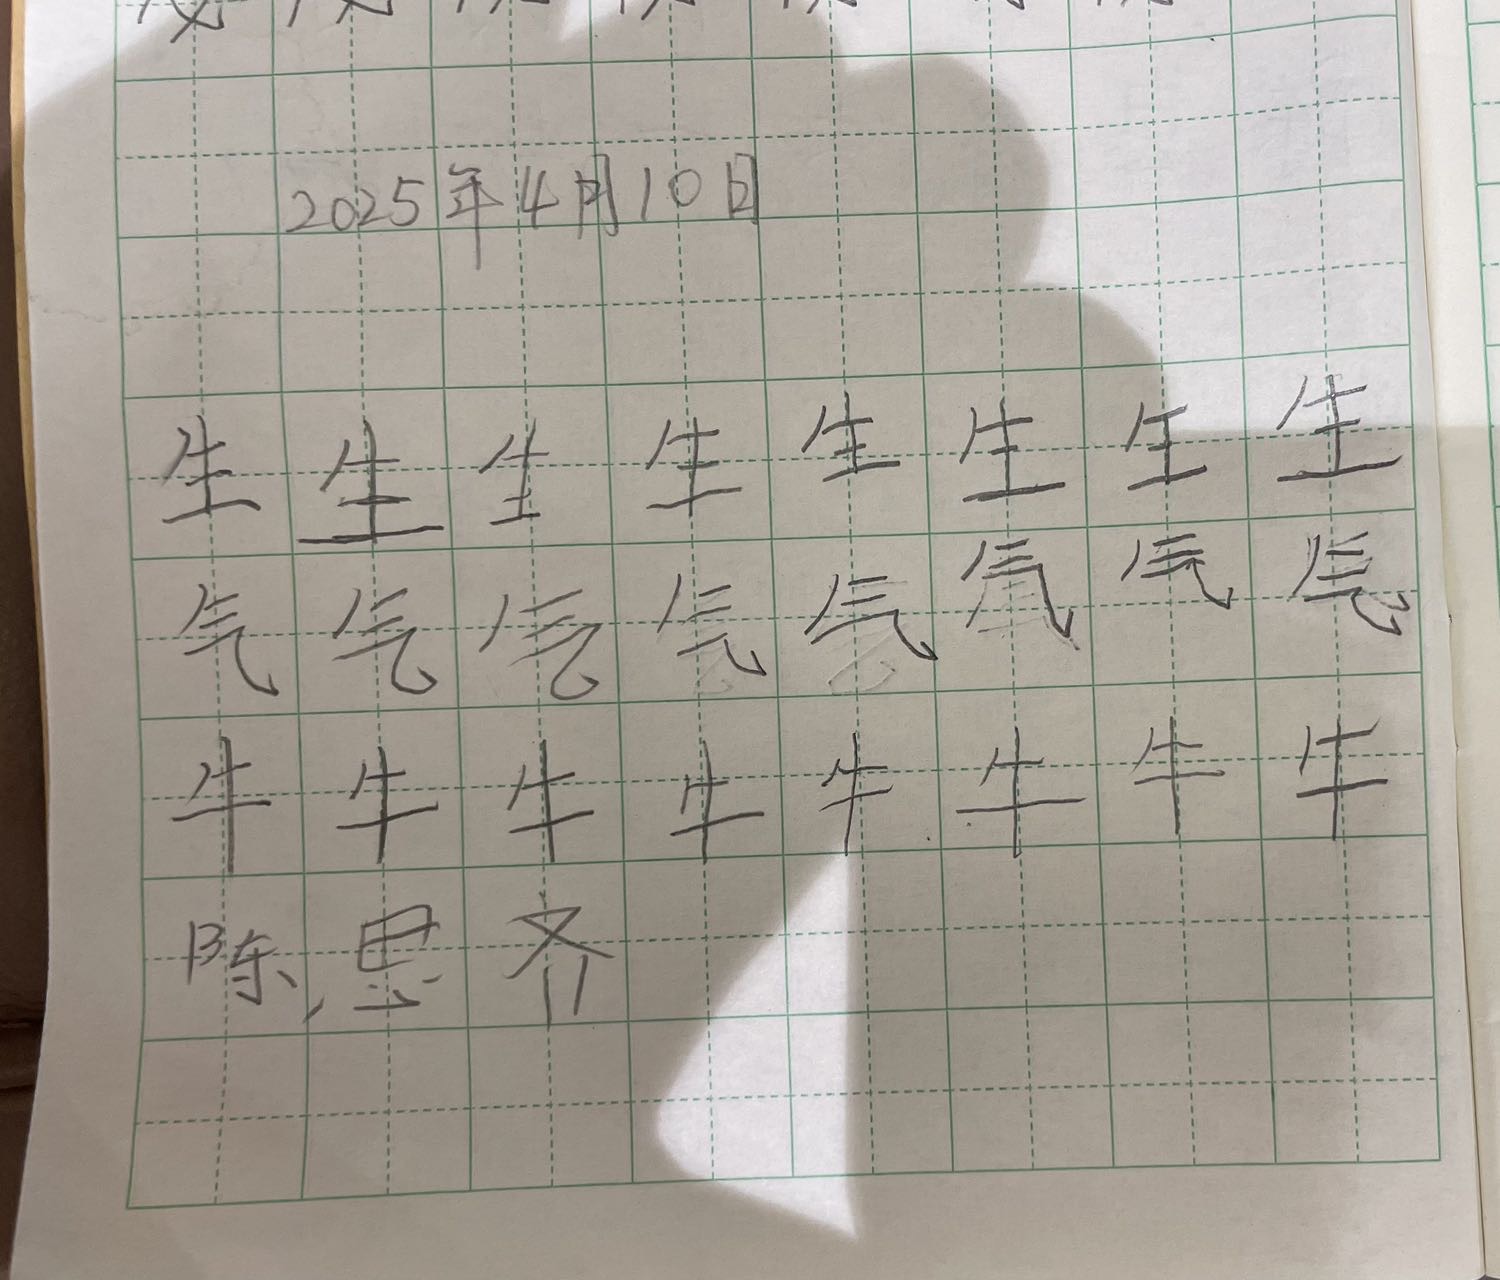 2025年4月10日
生生生生生生生生
气气气气气气气气
牛牛牛牛牛牛牛牛
陈思齐